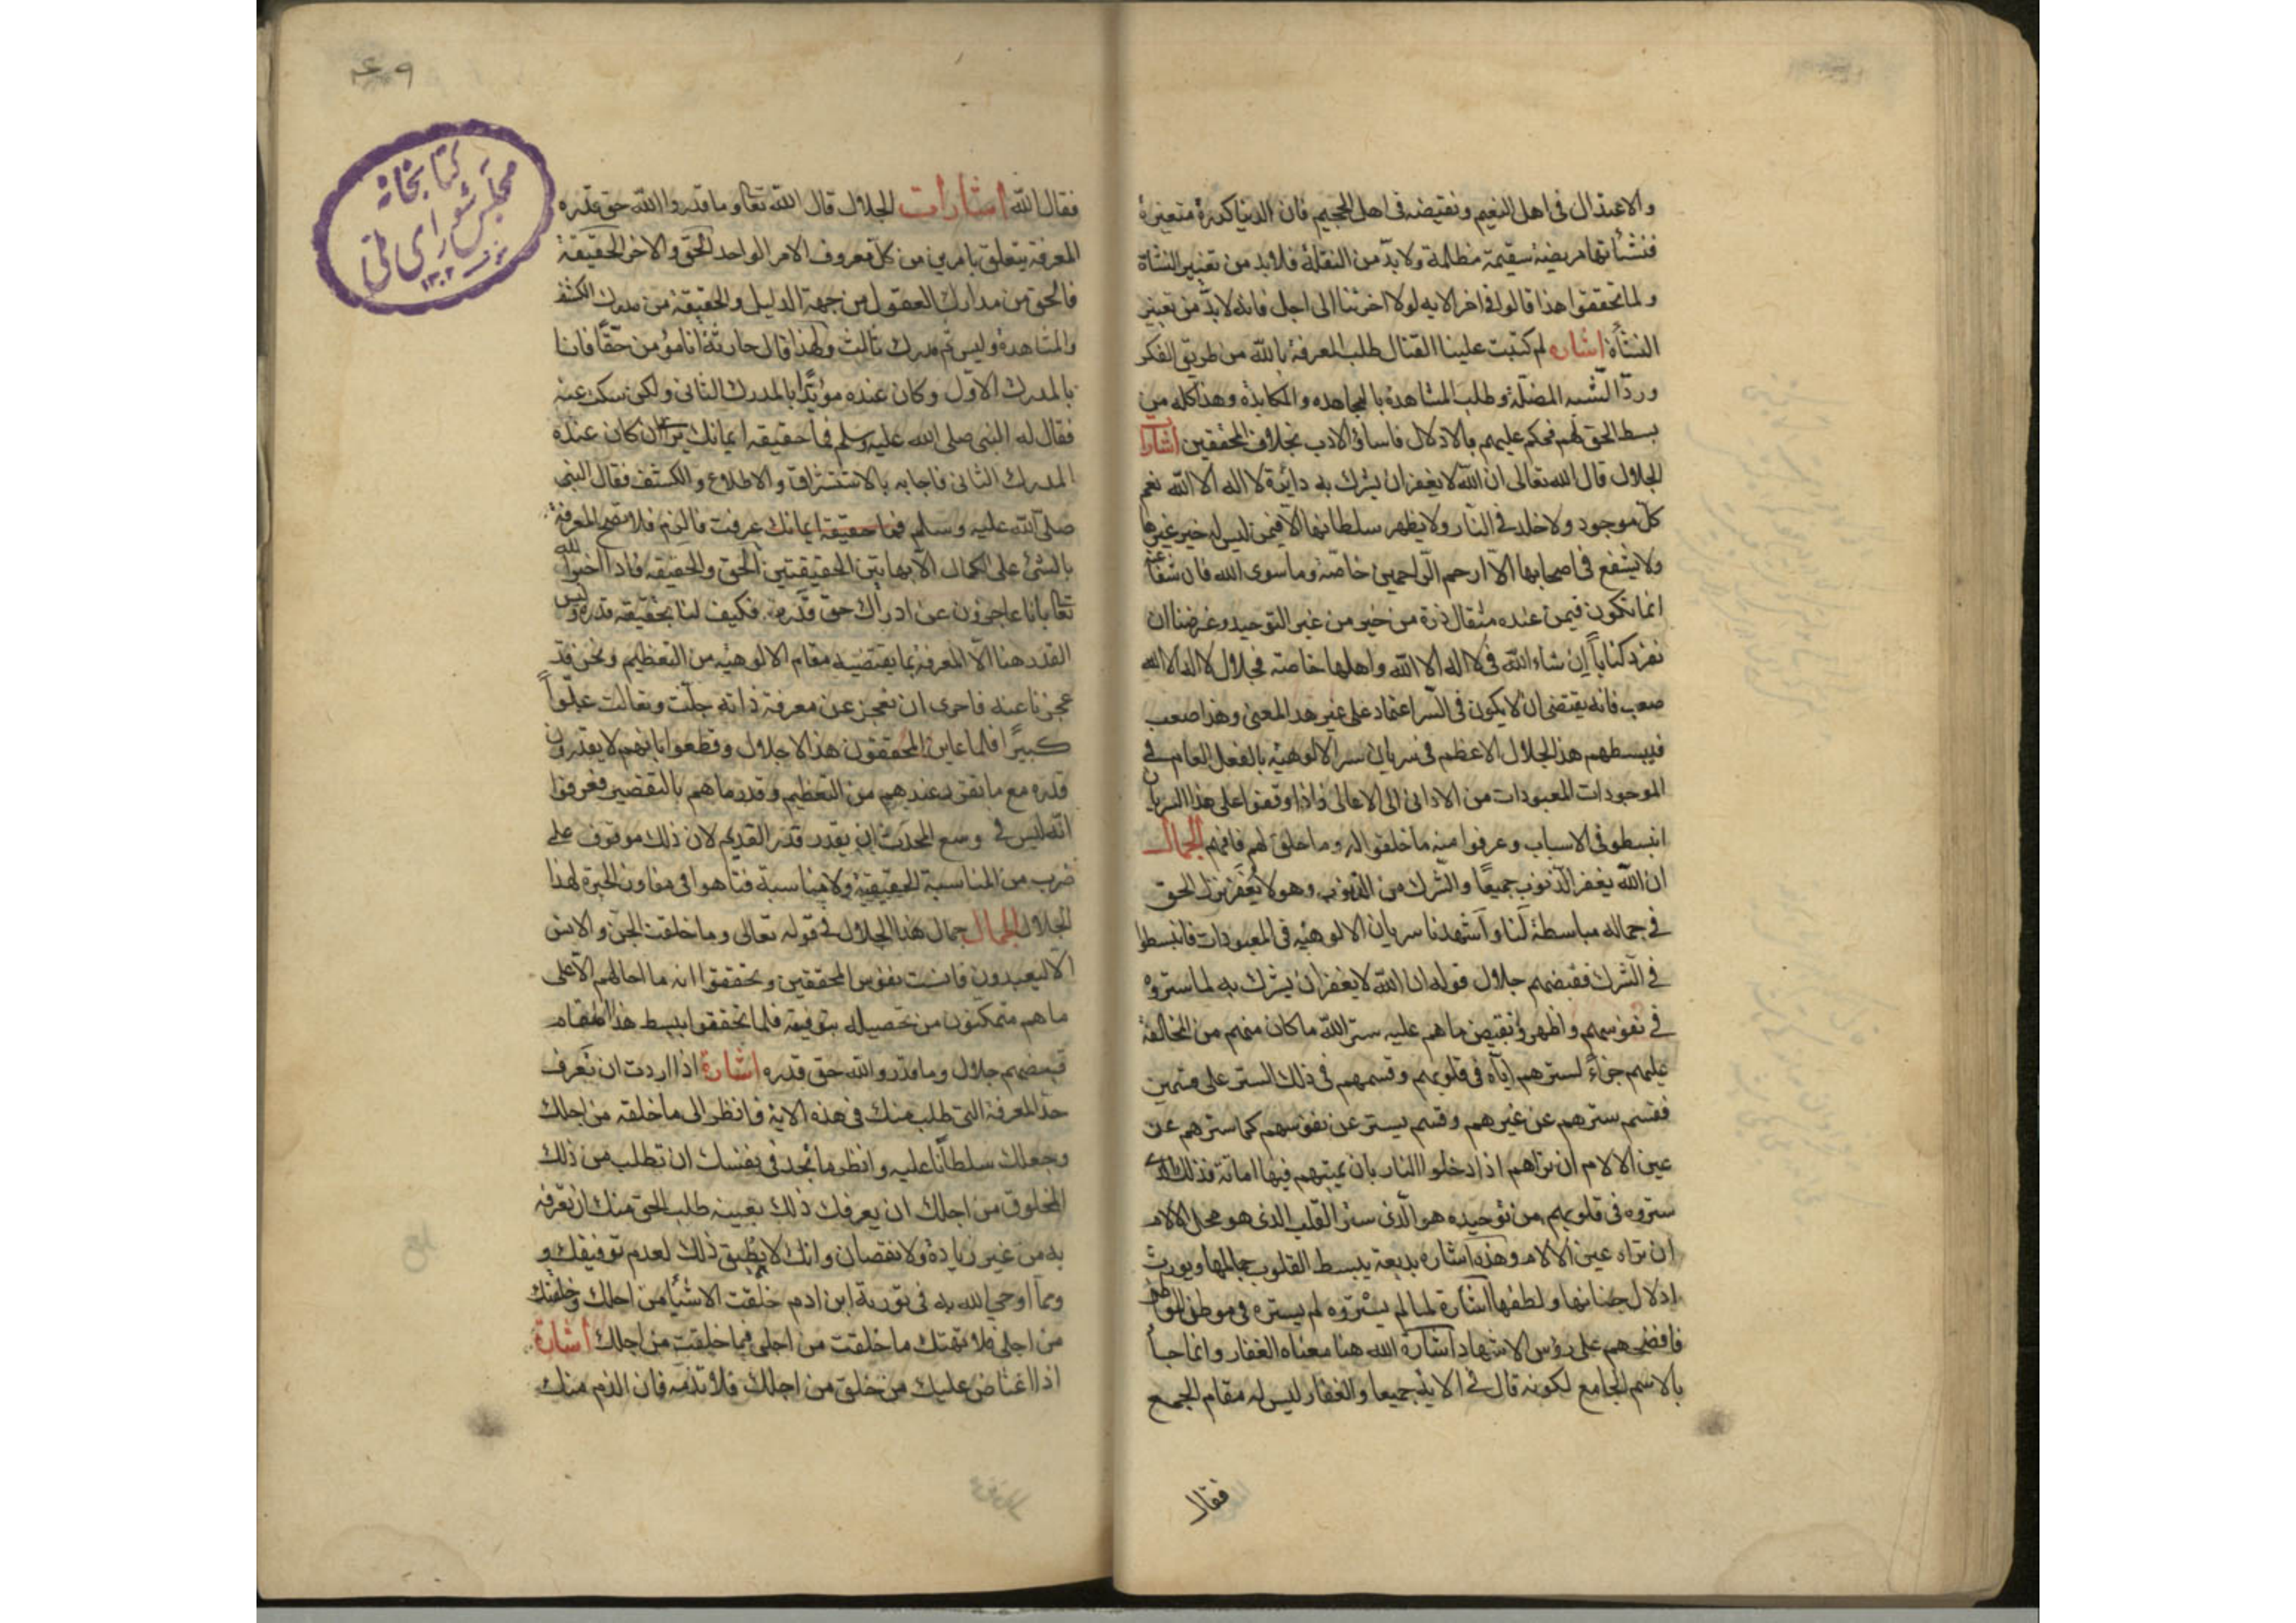 والاعتدال فى اهل النعيم ونقيضه فى اهل الجحيم فان الدنيا كدرة متغيرة
فنشأتها مريضة سقيمة مظلمة ولا بدّ من النقلة فلا بد من تغيير النشاة
ولما تحققوا هذا قالوا فى اخر الايه لولا اخرتنا الى اجل فانه لا بدّ من تغيير
النشأة اشاره لم كتبت علينا القتال طلب المعرفة بالله من طريق الفكر
وردّ الشبه المضلّة وطلب المشاهدة بالمجاهده والمكابدة وهذا كله من
بسط الحق لهم فحكم عليهم بالادلال فاساؤ الادب بخلاف المحققين اشارات
الجلال قال الله تعالى ان الله لا يغفر ان يشرك به دائرة لا اله الا الله نعم
كلّ موجود ولا خلد فى النّار ولا يظهر سلطانها الا فيمن ليس له خير غيرها
ولا يشفع فى اصحابها الاّ ارحم الرّاحمين خاصّة وما سوى الله فان شفاعته
انما تكون فيمن عنده مثقال ذرة من خير من غير التوحيد وغرضنا ان
نفرد كتاباً إن شاء الله فى لا اله الا الله واهلها خاصته فجلال لا اله الا الله
صعب فانه يقتضى ان لا يكون فى السّر اعتماد على غير هذ المعنى وهذا صعب
فيبسطهم هذ الجلال الاعظم فى سريان سر الالوهيّة بالفعل العام فى
الموجودات المعبودات من الادانى الى الاعالى فاذا وقفوا على هذا السريان
انبسطو فى الاسباب وعرفوا منه ما خلقوا له وما خلق لهم فافهم الجمال
ان الله يغفر الذنوب جميعًا والشّرك من الذنوب وهو لا يُغفَر نزل الحق
فى جماله مباسطة لَنا واَشهدنا سريان الالوهيّه فى المعبودات فانبسطوا
فى الشرك فقبضهم جلال قوله ان الله لا يغفر ان يشرك به لما ستروه
فى نفوسهم واظهرو نقيض ما هم عليه ستر الله ما كان منهم من المخالفة
عليهم جزاءً لسترهم ايّاه فى قلوبهم وقسمهم فى ذلك الستر على قسمين
فقسم سترهم عن غيرهم وقسم يستر عن نفوسهم كما سترهم عن
عين الالام ان تراهم اذا دخلوا النار بان يميتهم فيها اماتة فذلك الذى
ستروه فى قلوبهم من توحيده هو الّذى ستر القلب الذى هو محل الالام
ان تراه عين الالام وهذه اشاره بديعة يبسط القلوب جمالها ويورث
ادلال جنانها ولطفها اشارة لما لم يستروه لم يستره فى موطن
فافضحهم على رؤس الاشهاد اشارة الله هنا معناه الغفار وانما جأ
بالاسم الجامع لكونه قال فى الاية جميعا والغفار ليس له مقام الجمع
فقال
٤٠٩
كتابخانه
مجلس شوراى ملى
١٣٠٢
فقال الله اشارات الجلال قال الله تعالى وما قدروا الله حق قدره
المعرفة يتعلق بامرين من كل معروف الامر الواحد الحق والاخر الحقيقة
فالحق من مدارك العقول من جهة الدليل والحقيقة من مدرك الكشف
والمشاهدة وليس ثم مدرك ثالث ولهذا قال حارثة انا مؤمن حقّاً فاتنا
بالمدرك الاوّل وكان عنده مؤيّدًا بالمدرك الثانى ولكن سكت عنه
فقال له النبى صلى الله عليه وسلم فما حقيقة ايمانك ان كان عنده
المدرك الثانى فاجابه بالاستشراف والاطلاع والكشف فقال النبى
صلى الله عليه وسلم فما حقيقة ايمانك عرفت فالزم فلا تصح المعرفة
بالشئ على الكمال الا بهاتين الحقيقتين الحق والحقيقه فاذا اخبر الله
تعالى بانا عاجزون عن ادراك حق قدره فكيف لنا بحقيقة قدره وليس
القدر هنا الاّ المعرفة بما يقتضيه مقام الالوهيّه من التعظيم ونحن قد
عجزنا عنه فاحرى ان نعجز عن معرفة ذاته جلّت وتعالت علوّاً
كبيرًا فلما عاين المحققون هذا الاجلال وقطعوا بانهم لا يقدرون
قدره مع ما تقرر عندهم من التعظيم وقدرما هم بالتقصير فعرفوا
انّه ليس فى وسع المحدث ان يقدر قدر القديم لان ذلك موقوف على
ضرب من المناسبة الحقيقية ولا مناسبة فتاهوا فى مفاوز الحيرة لهذا
الجلال الجمال جمال هذا الجلال فى قوله تعالى وما خلقت الجن والانس
الا ليعبدون فانست نفوس المحققين وتحققوا انه ما احالهم الا على
ما هم متمكّنون من تحصيله بتوفيقه فلما تحققوا ببسط هذا المقام
قبضهم جلال وما قدروا الله حق قدره اشارة اذا اردت ان تعرف
حدّ المعرفة التى طلب منك فى هذه الاية فانظر الى ما خلقه من اجلك
وجعلك سلطانًا عليه وانظر ما تجد فى نفسك ان تطلب من ذلك
المخلوق من اجلك ان يعرفك ذلك بعينه طلب الحق منك ان تعرفه
به من غير زيادة ولا نقصان وانك لا تطيق ذلك لعدم توفيقك و
ممّا اوحى الله به فى تورية ابن ادم خلقت الاشيأ من اجلك وخلقتك
من اجلى فلا تهتك ما خلقت من اجلى فيما خلقت من اجلك اشارة
اذا اغتاض عليك من خلق من اجلك فلا تذمّه فان الذم منك